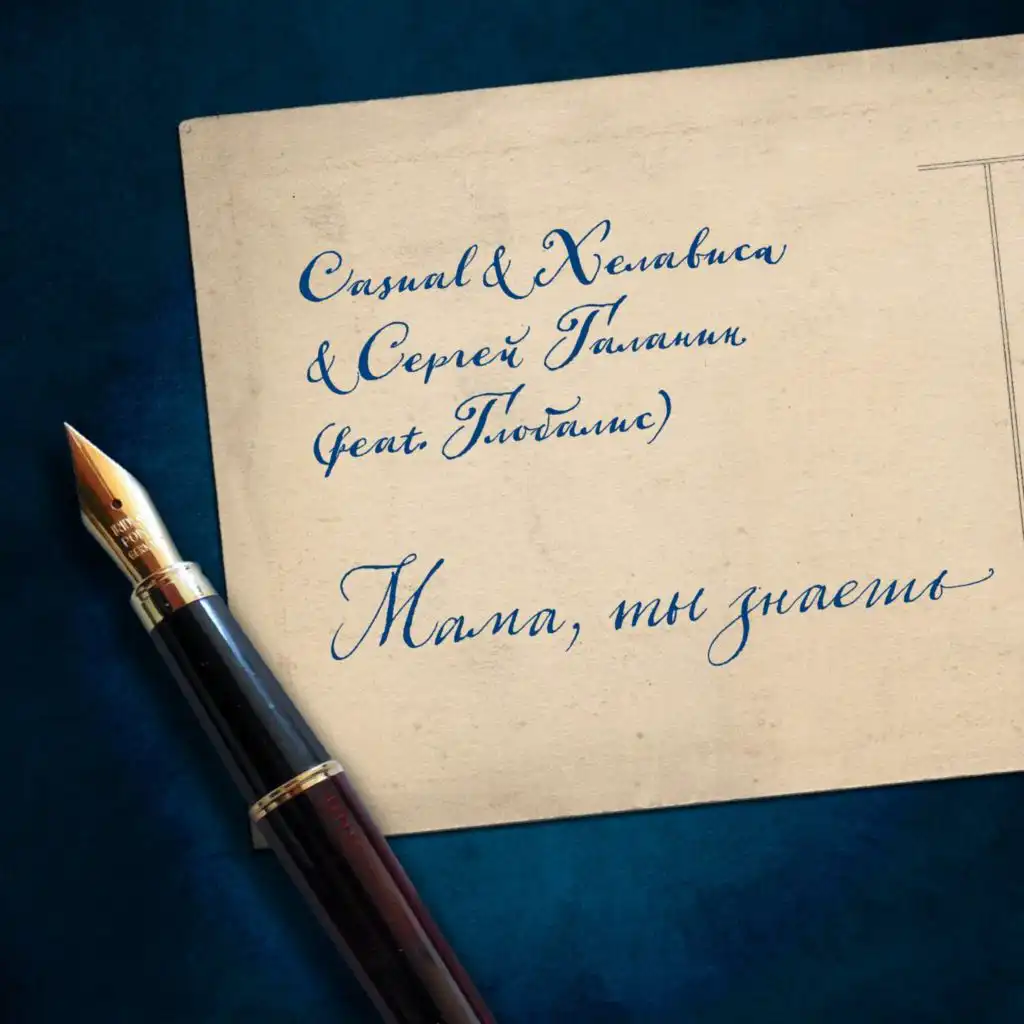 Casual & Хелависа
& Сергей Галанин
(feat. Глобалис)
Мама, ты знаешь